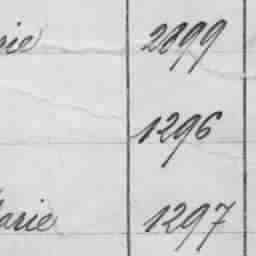 rie 2899
1296
arie 1297